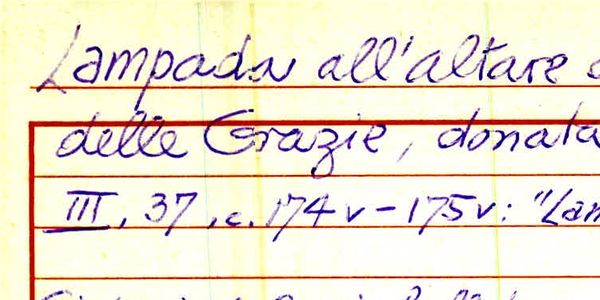 Lampada all'altare
delle Grazie, donata
III, 37, c. 174v-175v: "Lam